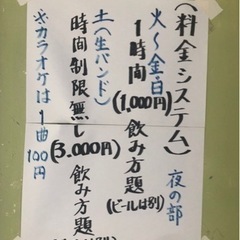 (料金システム) 夜の部
火～金・日
1時間 飲み放題
(1,000円) (ビールは別)
土(生バンド)
時間制限無し 飲み放題
(3,000円)
※カラオケは1曲100円